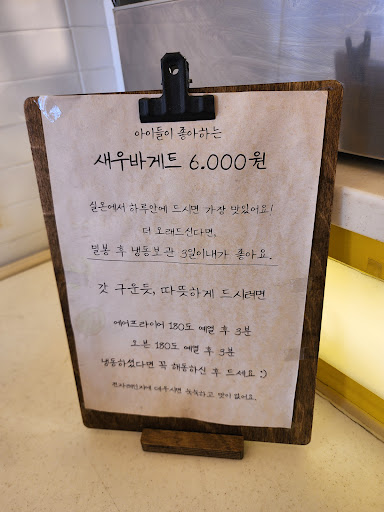 아이들이 좋아하는
새우바게트 6.000원
실온에서 하루안에 드시면 가장 맛있어요!
더 오래드신다면,
밀봉 후 냉동보관 3일이내가 좋아요.
갓 구운듯, 따뜻하게 드시려면
에어프라이어 180도 예열 후 3분
오븐 180도 예열 후 3분
냉동하셨다면 꼭 해동하신 후 드세요 :)
전자레인지에 데우시면 눅눅하고 맛이 없어요.